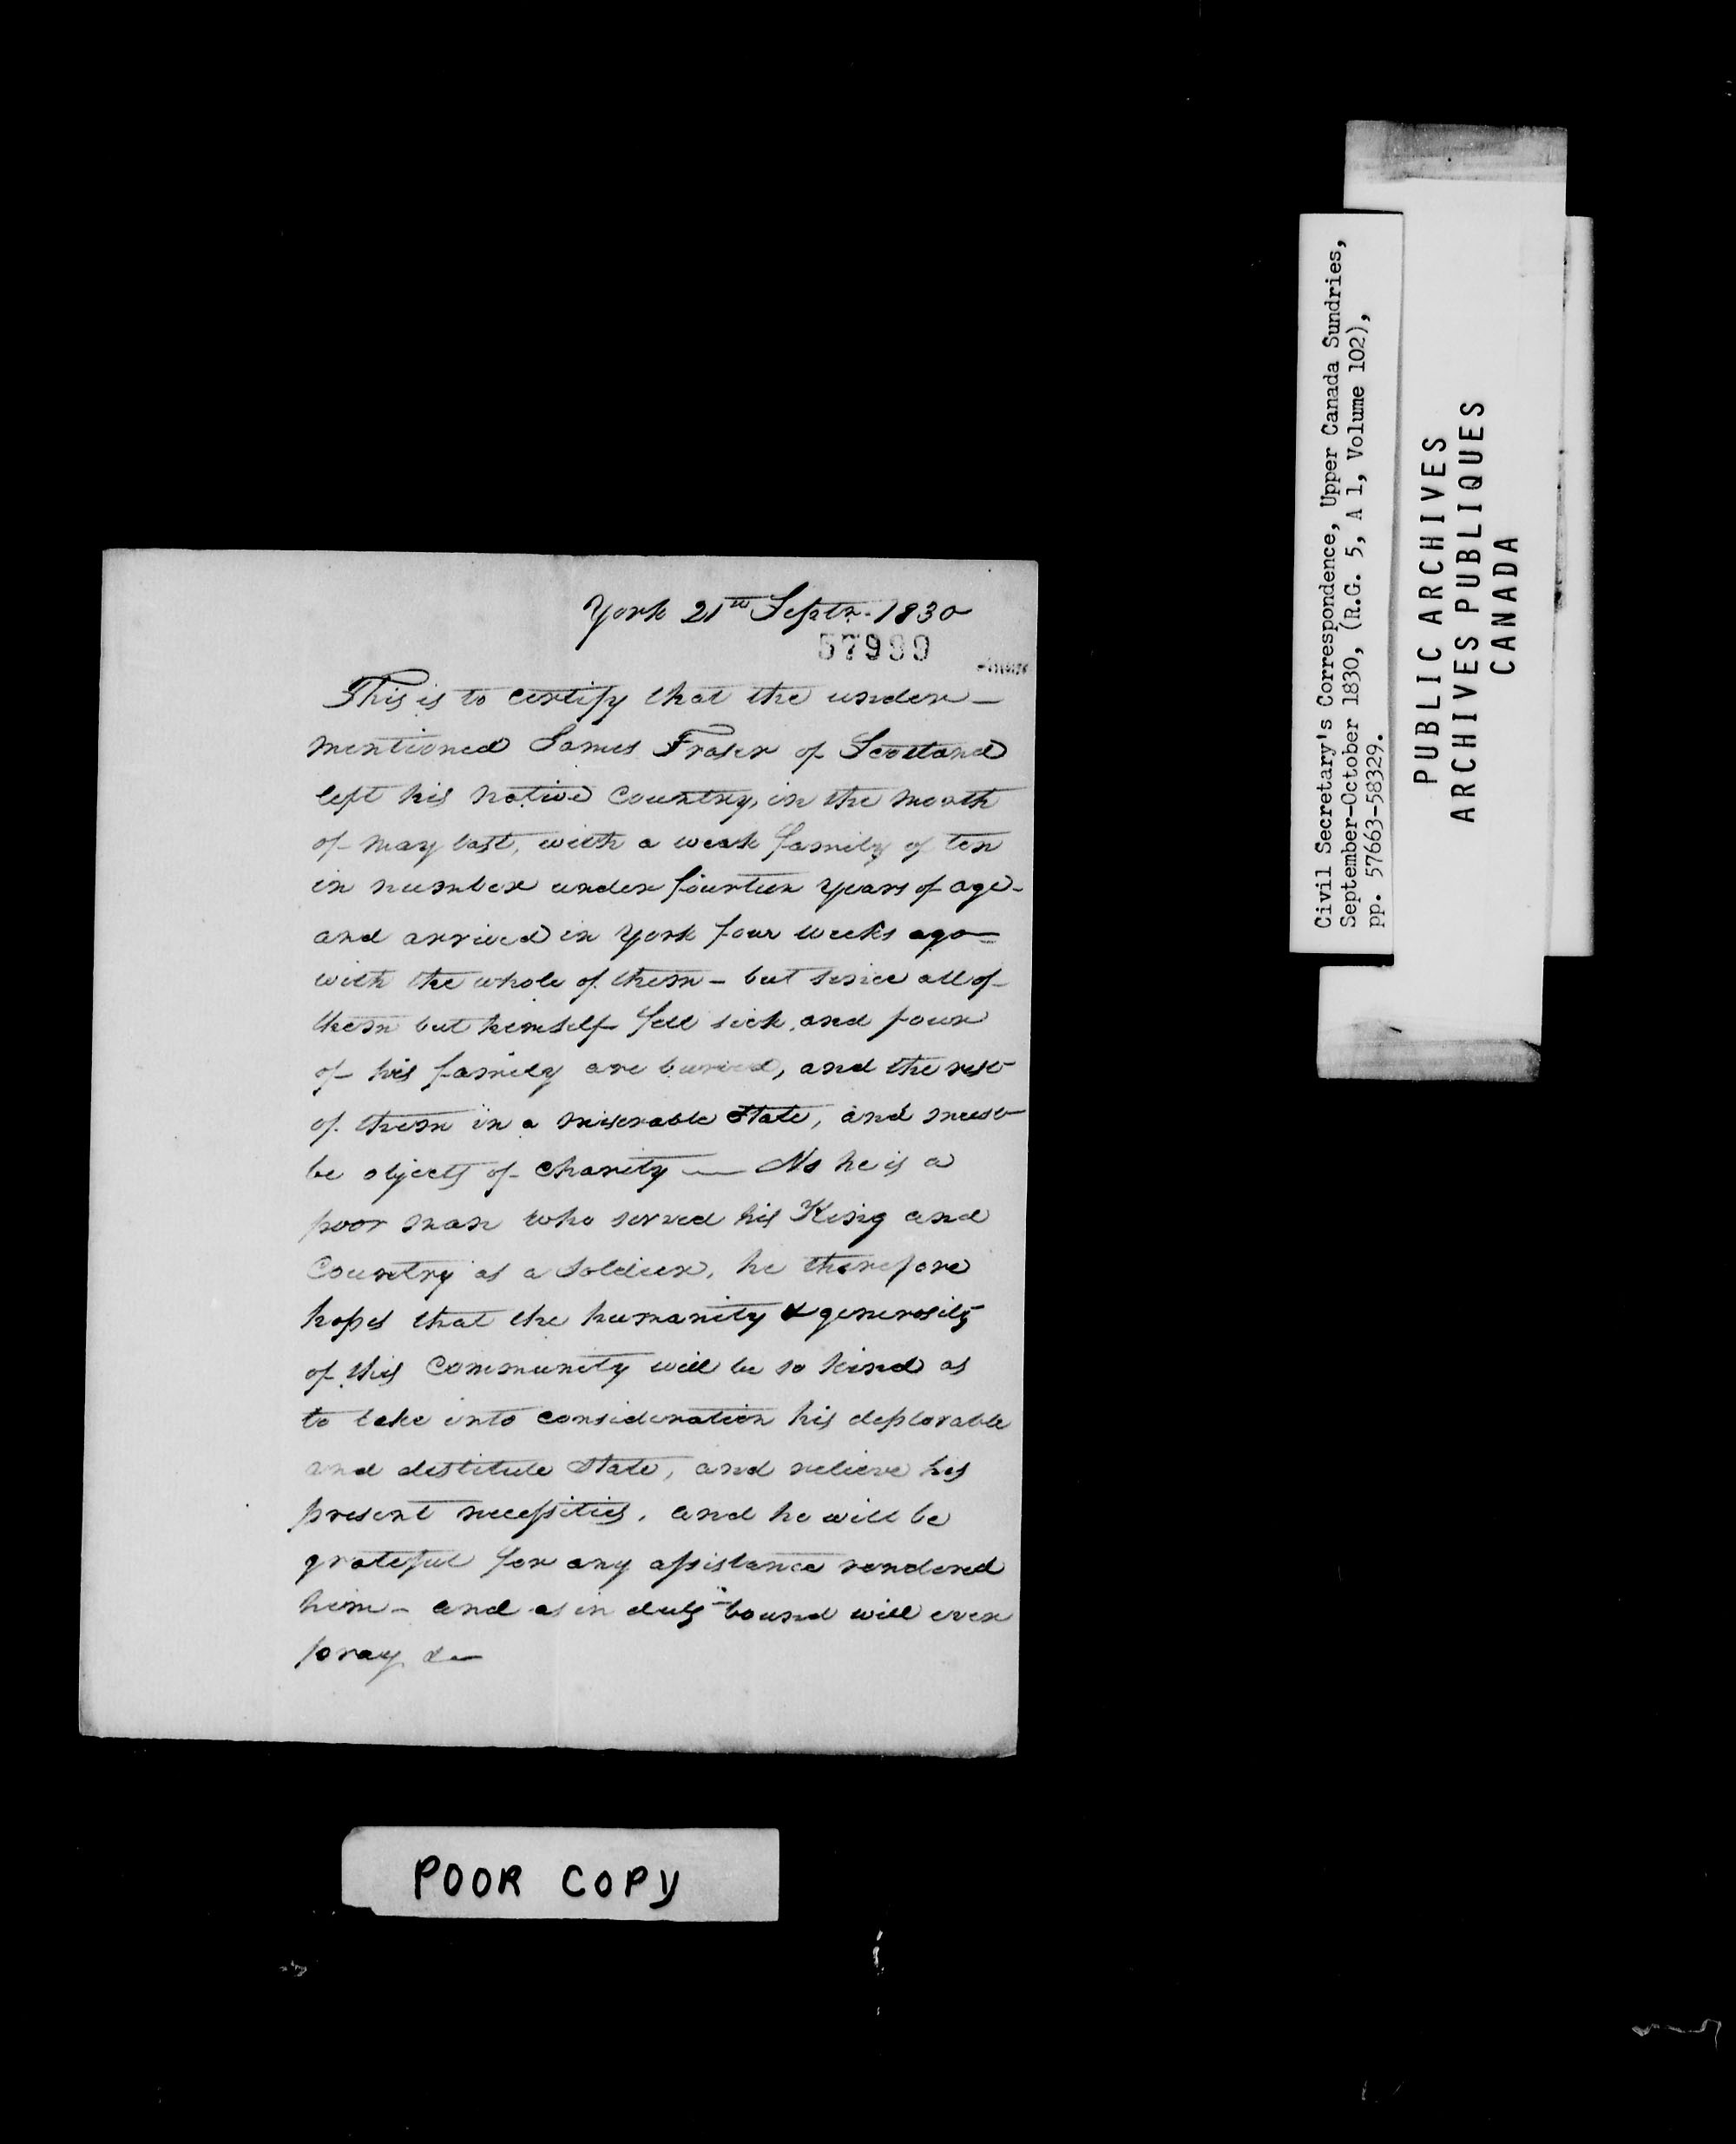 York 21st Septr. 1830
57999
This is to certify that the under-
mentioned James Fraser of Scotland
left his native Country, in the month
of may last, with a weak family of ten
in number under fourteen years of age-
and arrived in York four weeks ago
with the whole of them - but since all of
them but himself fell sick, and four
of his family are buried, and the rest
of them in a miserable state, and must
be objects of charity — As he is a
poor man who served his King and
Country as a soldier, he therefore
hopes that the humanity & generosity
of this Community will be so kind as
to take into consideration his deplorable
and destitute state, and relieve his
present necessities, and he will be
grateful for any assistance rendered
him - and as in duty bound will ever
pray &c
POOR COPY
Civil Secretary's Correspondence, Upper Canada Sundries,
September-October 1830, (R.G. 5, A 1, Volume 102),
pp. 57663-58329.
PUBLIC ARCHIVES
ARCHIVES PUBLIQUES
CANADA